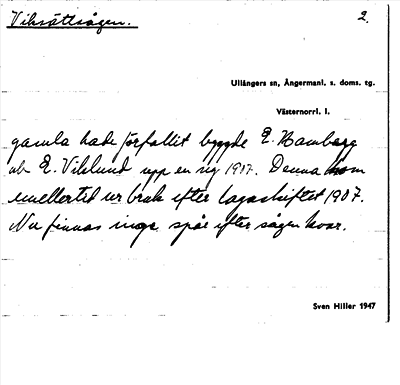 Viksättsågen. 2.
Ullångers sn, Ångermanl. s. doms. tg.
Västernorrl. l.
gamla hade förfallit byggde E. Hamberg
och E. Viklund upp en ny 1917. Denna kom
emellertid ur bruk efter lagaskiftet 1907.
Nu finnas inga spår efter sågen kvar.
Sven Hiller 1947